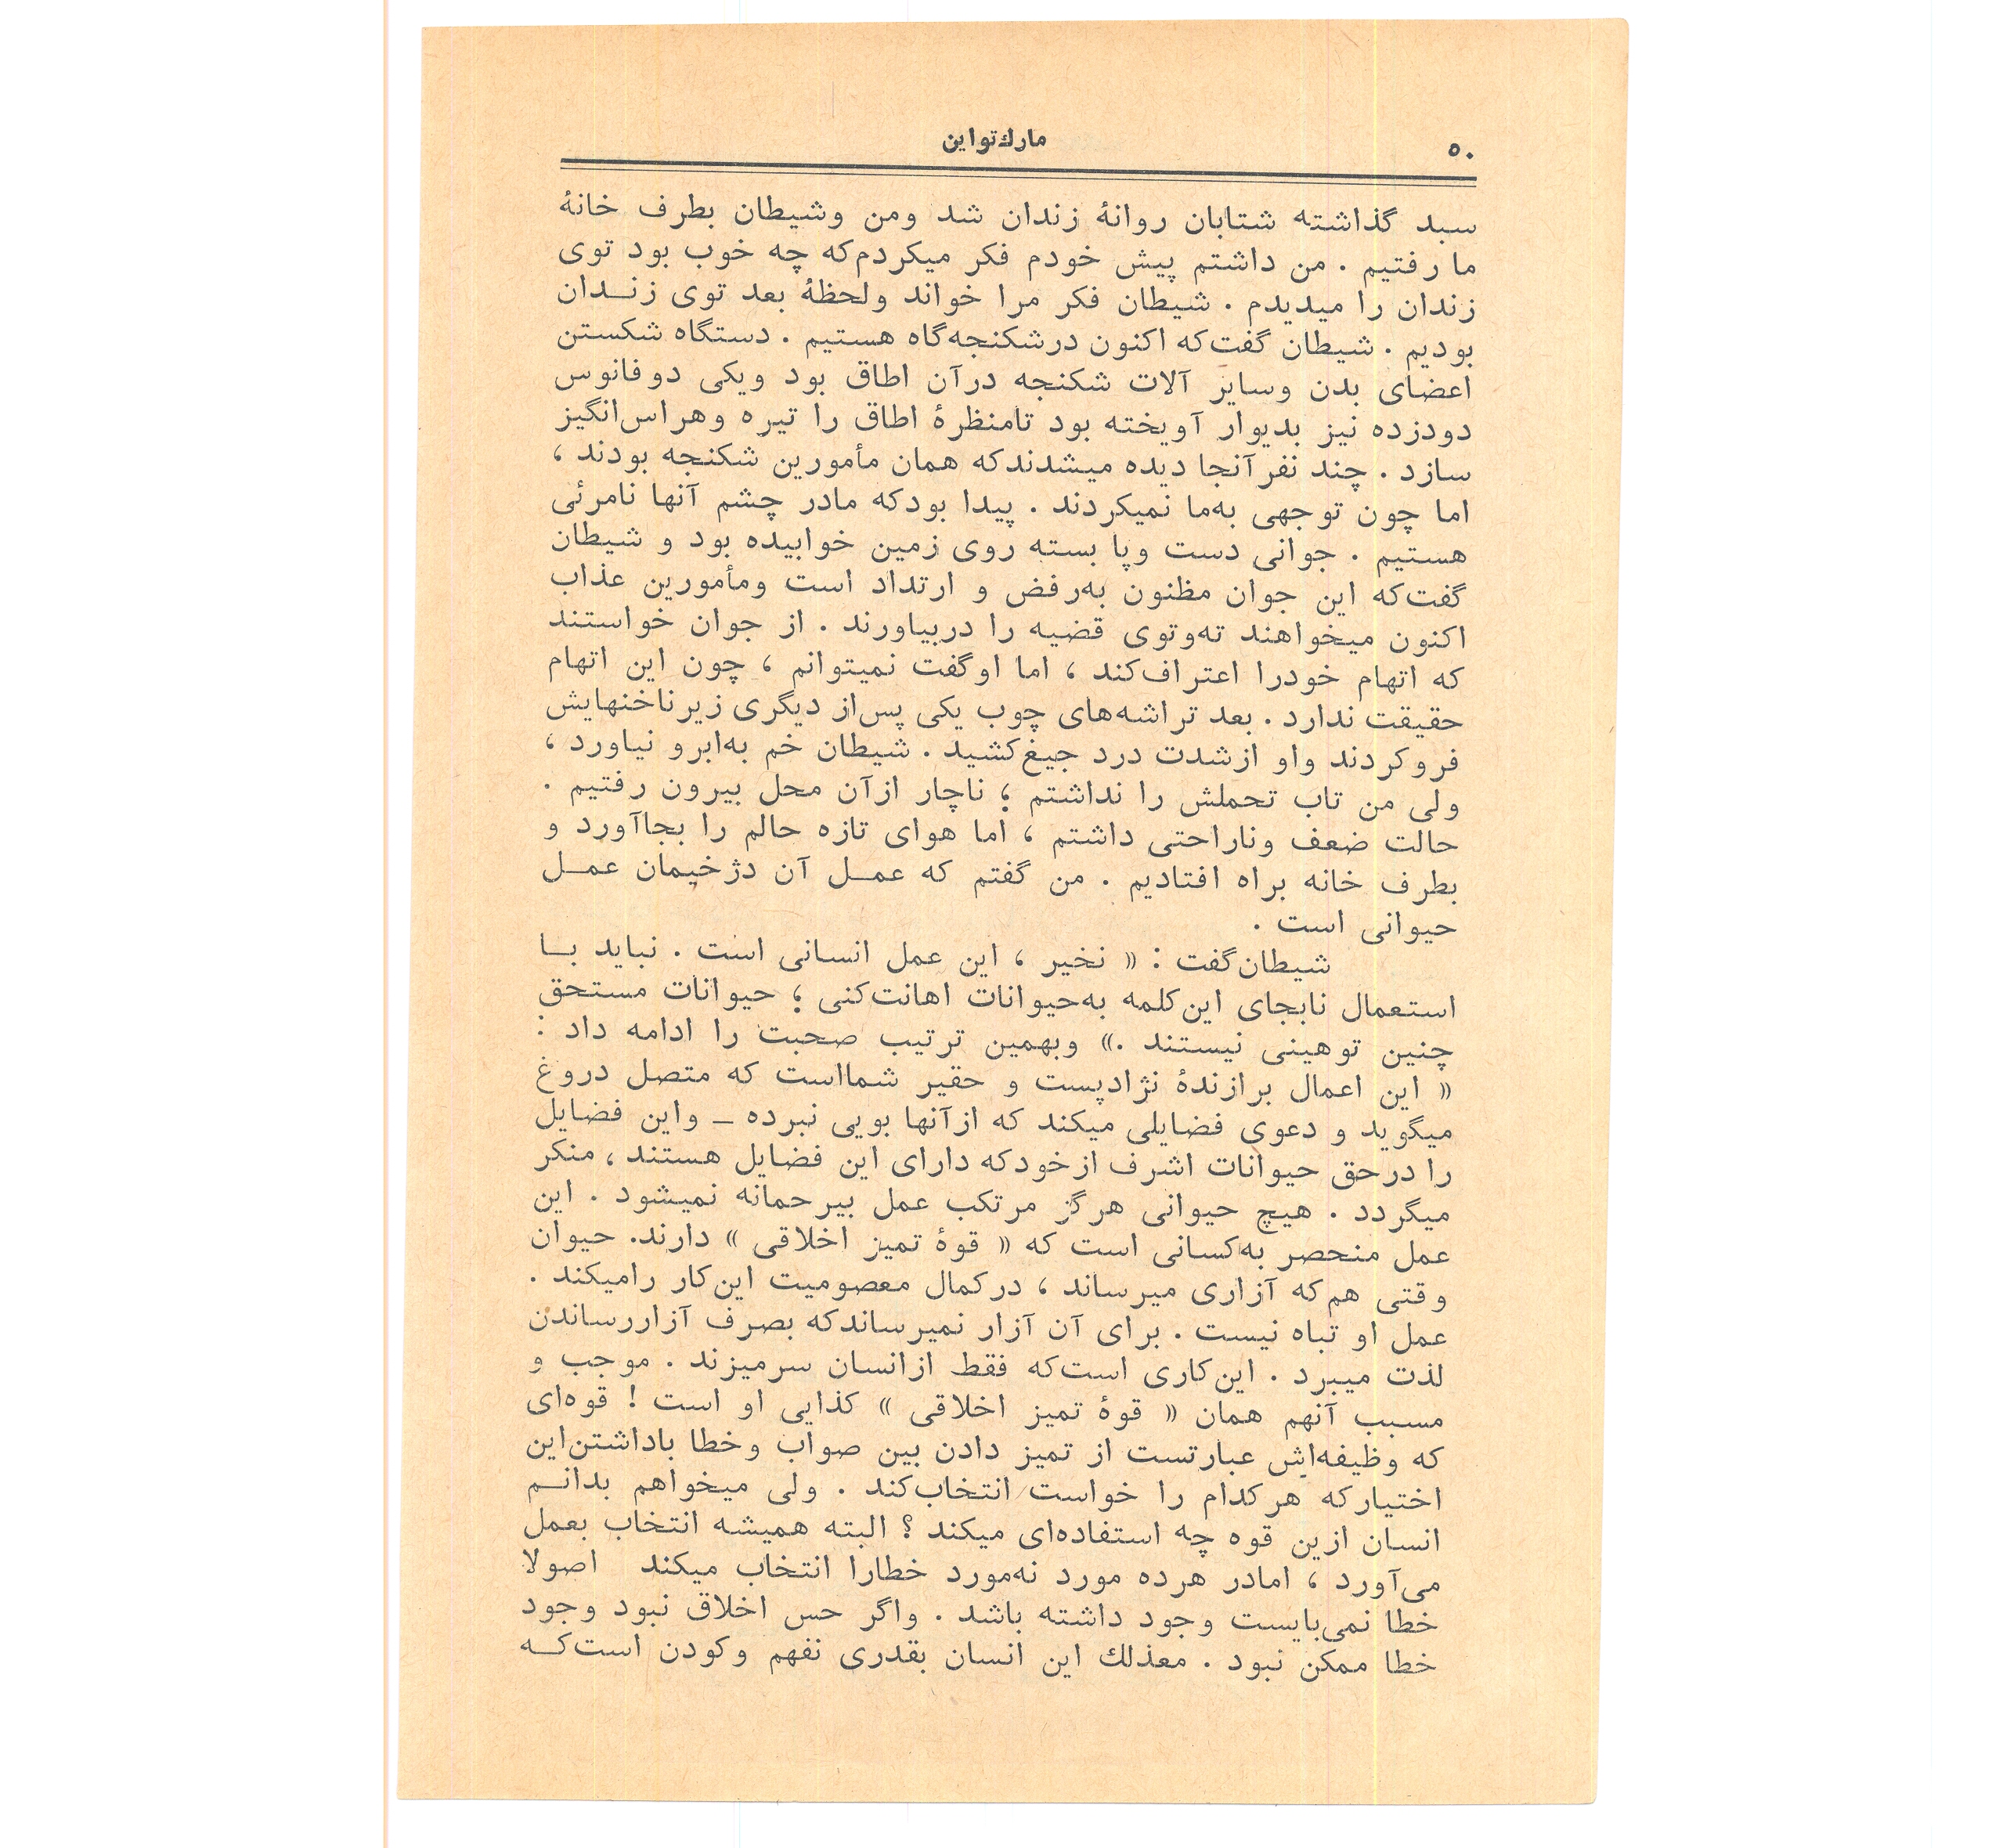 ۵۰
مارك‌تواین
سبد گذاشته شتابان روانهٔ زندان شد ومن وشیطان بطرف خانهٔ
ما رفتیم . من داشتم پیش خودم فکر میکردم‌که چه خوب بود توی
زندان را میدیدم . شیطان فکر مرا خواند ولحظهٔ بعد توی زنـدان
بودیم . شیطان گفت‌که اکنون درشکنجه‌گاه هستیم . دستگاه شکستن
اعضای بدن وسایر آلات شکنجه درآن اطاق بود ویکی دوفانوس
دودزده نیز بدیوار آویخته بود تامنظرهٔ اطاق را تیره وهراس‌انگیز
سازد . چند نفرآنجا دیده میشدندکه همان مأمورین شکنجه بودند ،
اما چون توجهی به‌ما نمیکردند . پیدا بودکه مادر چشم آنها نامرئی
هستیم . جوانی دست وپا بسته روی زمین خوابیده بود و شیطان
گفت‌که این جوان مظنون به‌رفض و ارتداد است ومأمورین عذاب
اکنون میخواهند ته‌وتوی قضیه را دربیاورند . از جوان خواستند
که اتهام خودرا اعتراف‌کند ، اما اوگفت نمیتوانم ، چون این اتهام
حقیقت ندارد . بعد تراشه‌های چوب یکی پس‌از دیگری زیرناخنهایش
فروکردند واو ازشدت درد جیغ‌کشید . شیطان خم به‌ابرو نیاورد ،
ولی من تاب تحملش را نداشتم ؛ ناچار ازآن محل بیرون رفتیم .
حالت ضعف وناراحتی داشتم ، اما هوای تازه حالم را بجاآورد و
بطرف خانه براه افتادیم . من گفتم که عمـل آن دژخیمان عمـل
حیوانی است .
شیطان‌گفت : « نخیر ، این عمل انسانی است . نباید بـا
استعمال نابجای این‌کلمه به‌حیوانات اهانت‌کنی ؛ حیوانات مستحق
چنین توهینی نیستند .» وبهمین ترتیب صحبت را ادامه داد :
« این اعمال برازندهٔ نژادپست و حقیر شمااست که متصل دروغ
میگوید و دعوی فضایلی میکند که ازآنها بویی نبرده ـ واین فضایل
را درحق حیوانات اشرف ازخودکه دارای این فضایل هستند ، منکر
میگردد . هیچ حیوانی هرگز مرتکب عمل بیرحمانه نمیشود . این
عمل منحصر به‌کسانی است که « قوهٔ تمیز اخلاقی » دارند. حیوان
وقتی هم‌که آزاری میرساند ، درکمال معصومیت این‌کار رامیکند .
عمل او تباه نیست . برای آن آزار نمیرساندکه بصرف آزاررساندن
لذت میبرد . این‌کاری است‌که فقط ازانسان سرمیزند . موجب و
مسبب آنهم همان « قوهٔ تمیز اخلاقی » کذایی او است ! قوه‌ای
که وظیفه‌اش عبارتست از تمیز دادن بین صواب وخطا باداشتن‌این
اختیارکه هرکدام را خواست انتخاب‌کند . ولی میخواهم بدانـم
انسان ازین قوه چه استفاده‌ای میکند ؟ البته همیشه انتخاب بعمل
می‌آورد ، امادر هرده مورد نه‌مورد خطارا انتخاب میکند اصولا
خطا نمی‌بایست وجود داشته باشد . واگر حس اخلاق نبود وجود
خطا ممکن نبود . معذلك این انسان بقدری نفهم وکودن است‌کـه